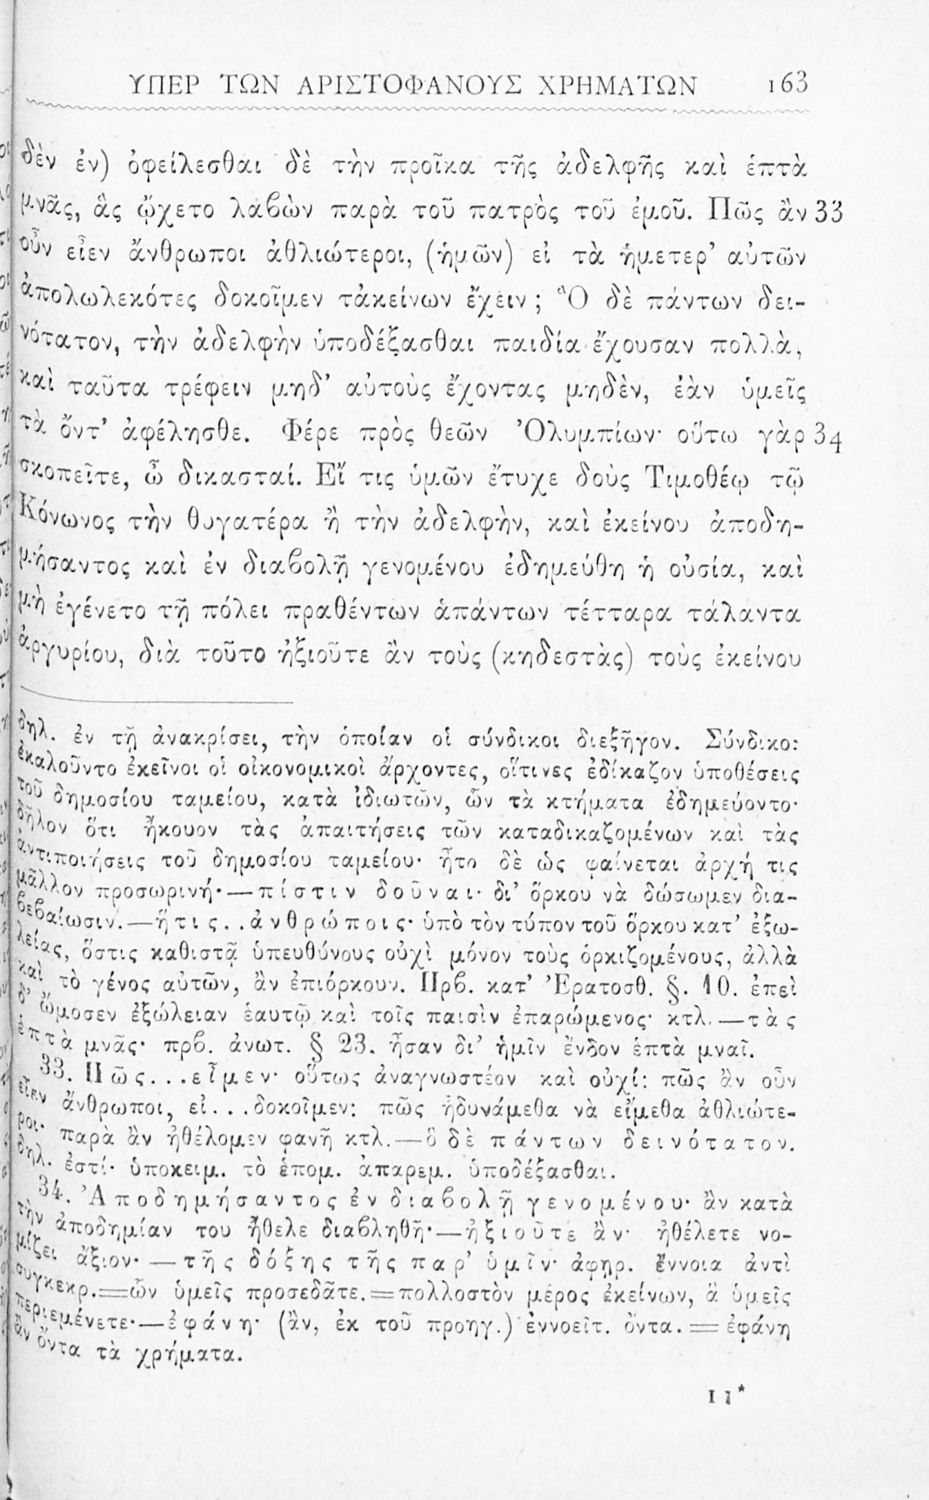 ΥΠΕΡ ΤΩΝ ΑΡΙΣΤΟΦΑΝΟΥΣ ΧΡΗΜΑΤΩΝ 163
δὲν ἐν) ὀφείλεσθαι δὲ τὴν προῖκα τῆς ἀδελφῆς καὶ ἑπτὰ
μνᾶς, ἃς ᾤχετο λαβὼν παρὰ τοῦ πατρὸς τοῦ ἐμοῦ. Πῶς ἂν 33
οὖν εἶεν ἄνθρωποι ἀθλιώτεροι, (ἡμῶν) εἰ τὰ ἡμετερ’ αὐτῶν
ἀπολωλεκότες δοκοῖμεν τἀκείνων ἔχειν; Ὃ δὲ πάντων δει-
νότατον, τὴν ἀδελφὴν ὑποδέξασθαι παιδία ἔχουσαν πολλὰ,
καὶ ταῦτα τρέφειν μηδ’ αὐτοὺς ἔχοντας μηδὲν, ἐὰν ὑμεῖς
τὰ ὄντ’ ἀφέλησθε. Φέρε πρὸς θεῶν Ὀλυμπίων· οὕτω γὰρ 34
σκοπεῖτε, ὦ δικασταί. Εἴ τις ὑμῶν ἔτυχε δοὺς Τιμοθέῳ τῷ
Κόνωνος τὴν θυγατέρα ἢ τὴν ἀδελφὴν, καὶ ἐκείνου ἀποδη-
μήσαντος καὶ ἐν διαβολῇ γενομένου ἐδημεύθη ἡ οὐσία, καὶ
μὴ ἐγένετο τῇ πόλει πραθέντων ἁπάντων τέτταρα τάλαντα
ἀργυρίου, διὰ τοῦτο ἠξιοῦτε ἂν τοὺς (κηδεστὰς) τοὺς ἐκείνου
δηλ. ἐν τῇ ἀνακρίσει, τὴν ὁποίαν οἱ σύνδικοι διεξῆγον. Σύνδικοι
ἐκαλοῦντο ἐκεῖνοι οἱ οἰκονομικοὶ ἄρχοντες, οἵτινες ἐδίκαζον ὑποθέσεις
τοῦ δημοσίου ταμείου, κατὰ ἰδιωτῶν, ὧν τὰ κτήματα ἐδημεύοντο·
δῆλον ὅτι ἤκουον τὰς ἀπαιτήσεις τῶν καταδικαζομένων καὶ τὰς
ἀντιποιήσεις τοῦ δημοσίου ταμείου· ἦτο δὲ ὡς φαίνεται ἀρχή τις
μᾶλλον προσωρινή·—πίστιν δοῦναι· δι’ ὅρκου νὰ δώσωμεν δια-
βεβαίωσιν.—ἥτις..ἀνθρώποις· ὑπὸ τὸν τύπον τοῦ ὅρκου κατ’ ἐξω-
λείας, ὅστις καθιστᾷ ὑπευθύνους οὐχὶ μόνον τοὺς ὁρκιζομένους, ἀλλὰ
καὶ τὸ γένος αὐτῶν, ἂν ἐπιόρκουν. Πρβ. κατ’ Ἐρατοσθ. §. 10. ἐπεὶ
δ’ ὤμοσεν ἐξώλειαν ἑαυτῷ καὶ τοῖς παισὶν ἐπαρώμενος· κτλ.—τὰς
ἑπτὰ μνᾶς· πρβ. ἀνωτ. § 23. ἦσαν δι’ ἡμῖν ἔνδον ἑπτὰ μναῖ.
33. Πῶς...εἶμεν· οὕτως ἀναγνωστέον καὶ οὐχί: πῶς ἂν οὖν
εἶεν ἄνθρωποι, εἰ...δοκοῖμεν: πῶς ἠδυνάμεθα νὰ εἴμεθα ἀθλιώτε-
ροι. παρὰ ἂν ἠθέλομεν φανῆ κτλ.—ὃ δὲ πάντων δεινότατον.
δηλ. ἐστί· ὑποκειμ. τὸ ἑπομ. ἀπαρεμ. ὑποδέξασθαι.
34. Ἀποδημήσαντος ἐν διαβολῇ γενομένου· ἂν κατὰ
τὴν ἀποδημίαν του ἤθελε διαβληθῆ·—ἠξιοῦτε ἂν· ἠθέλετε νο-
μίζει ἄξιον·—τῆς δόξης τῆς παρ’ ὑμῖν· ἀφηρ. ἔννοια ἀντὶ
συγκεκρ.=ὧν ὑμεῖς προσεδᾶτε.=πολλοστὸν μέρος ἐκείνων, ἃ ὑμεῖς
περιεμένετε·—ἐφάνη· (ἂν, ἐκ τοῦ προηγ.) ἐννοεῖτ. ὄντα.=ἐφάνη
ἂν ὄντα τὰ χρήματα.
11*